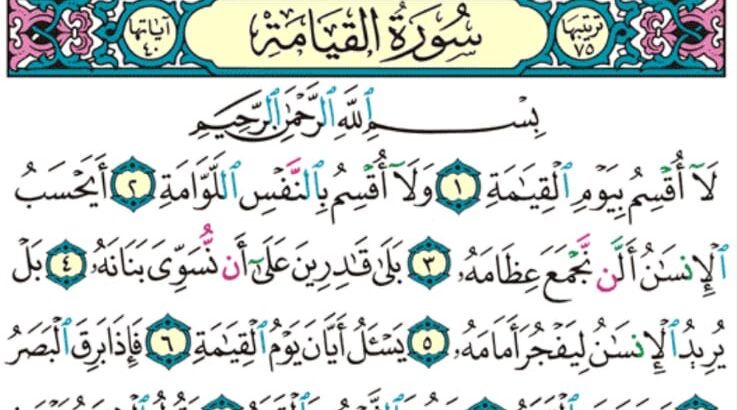 ترتيبها ٧٥
سُورَةُ القِيَامَةِ
آياتها ٤٠
بِسْمِ ٱللَّهِ ٱلرَّحْمَٰنِ ٱلرَّحِيمِ
لَآ أُقْسِمُ بِيَوْمِ ٱلْقِيَٰمَةِ ١ وَلَآ أُقْسِمُ بِٱلنَّفْسِ ٱللَّوَّامَةِ ٢ أَيَحْسَبُ
ٱلْإِنسَٰنُ أَلَّن نَّجْمَعَ عِظَامَهُۥ ٣ بَلَىٰ قَٰدِرِينَ عَلَىٰٓ أَن نُّسَوِّىَ بَنَانَهُۥ ٤ بَلْ
يُرِيدُ ٱلْإِنسَٰنُ لِيَفْجُرَ أَمَامَهُۥ ٥ يَسْـَٔلُ أَيَّانَ يَوْمُ ٱلْقِيَٰمَةِ ٦ فَإِذَا بَرِقَ ٱلْبَصَرُ